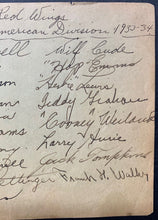 Red Wings
American Division 1933-34
ell Wilf Cude
"Hap" Emms
"Herbie" Lewis
Teddy Graham
"Cooney" Weiland
Larry Aurie
Jack Tompkins
Frank H. Walley